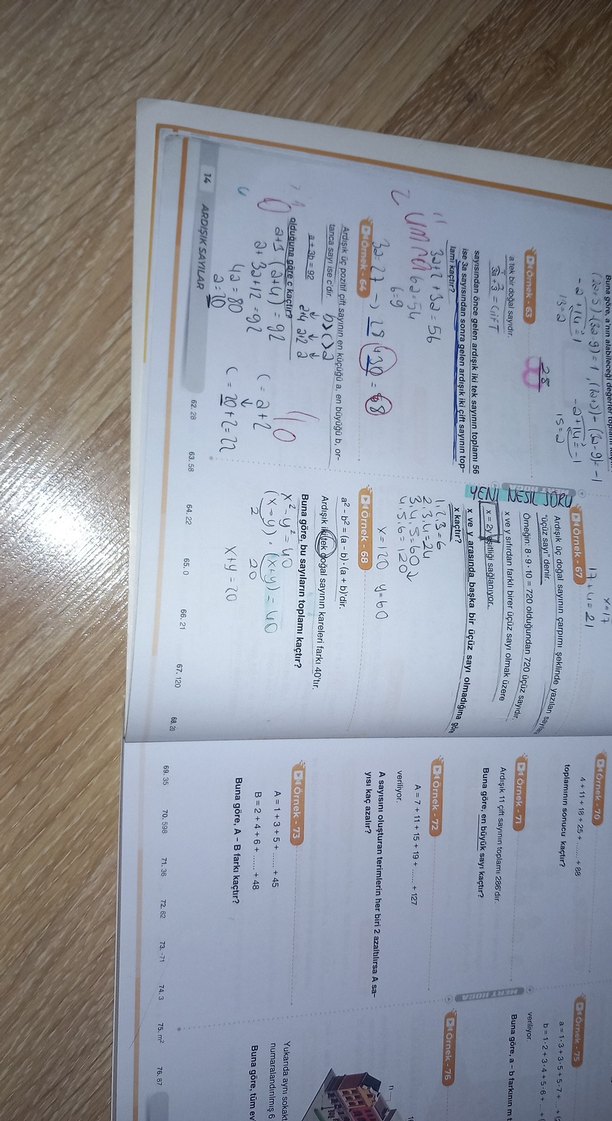 Örnek - 63
a tek bir doğal sayıdır.
3a = ÇİFT
sayısından önce gelen ardışık iki tek sayının toplamı 56
ise 3a sayısından sonra gelen ardışık iki çift sayının top-
lamı kaçtır?
6a=54
Örnek - 64
Ardışık üç pozitif çift sayının en küçüğü a, en büyüğü b, or-
tanca sayı ise c'dir.
a + 3b = 92
b>c>a
olduğuna göre c kaçtır?
a+3(a+4)=92
a+3a+12=92
4a=80
a=20
c=a+2
c=20+2=22
14 ARDIŞIK SAYILAR
62. 28 63. 58 64. 22 65. 0 66. 21 67. 120 68. 20
x=17
17+4=21
Örnek - 67
YENİ NESİL SORU
Ardışık üç doğal sayının çarpımı şeklinde yazılan
"üçüz sayı" denir.
Örneğin: 8 · 9 · 10 = 720 olduğundan 720 üçüz sayıdır.
x ve y sıfırdan farklı birer üçüz sayı olmak üzere
x = 2y eşitliği sağlanıyor.
x ve y arasında başka bir üçüz sayı olmadığına göre
x kaçtır?
1.2.3=6
2.3.4=24
3.4.5=60
4.5.6=120
x=120 y=60
Örnek - 68
a² – b² = (a – b) · (a + b)'dir.
Ardışık iki tek doğal sayının kareleri farkı 40'tır.
Buna göre, bu sayıların toplamı kaçtır?
x²-y²=40
(x-y).(x+y)=40
2 20
x+y=20
Örnek - 70
4 + 11 + 18 + 25 + ...... + 88
toplamının sonucu kaçtır?
Örnek - 71
Ardışık 11 çift sayının toplamı 286'dır.
Buna göre, en büyük sayı kaçtır?
Örnek - 72
A = 7 + 11 + 15 + 19 + ...... + 127
veriliyor.
A sayısını oluşturan terimlerin her biri 2 azaltılırsa A sa-
yısı kaç azalır?
Örnek - 73
A = 1 + 3 + 5 + ...... + 45
B = 2 + 4 + 6 + ...... + 48
Buna göre, A – B farkı kaçtır?
69. 35 70. 598 71. 36 72. 62 73. -71 74. 3 75. m² 76. 87
MERT HOCA
Örnek - 75
a = 1·3 + 3·5 + 5·7 +
b = 1·2 + 3·4 + 5·6 +
veriliyor
Buna göre, a – b farkının
Örnek - 76
Yukarıda aynı sokakt
numaralandırılmış 6
Buna göre, tüm ev